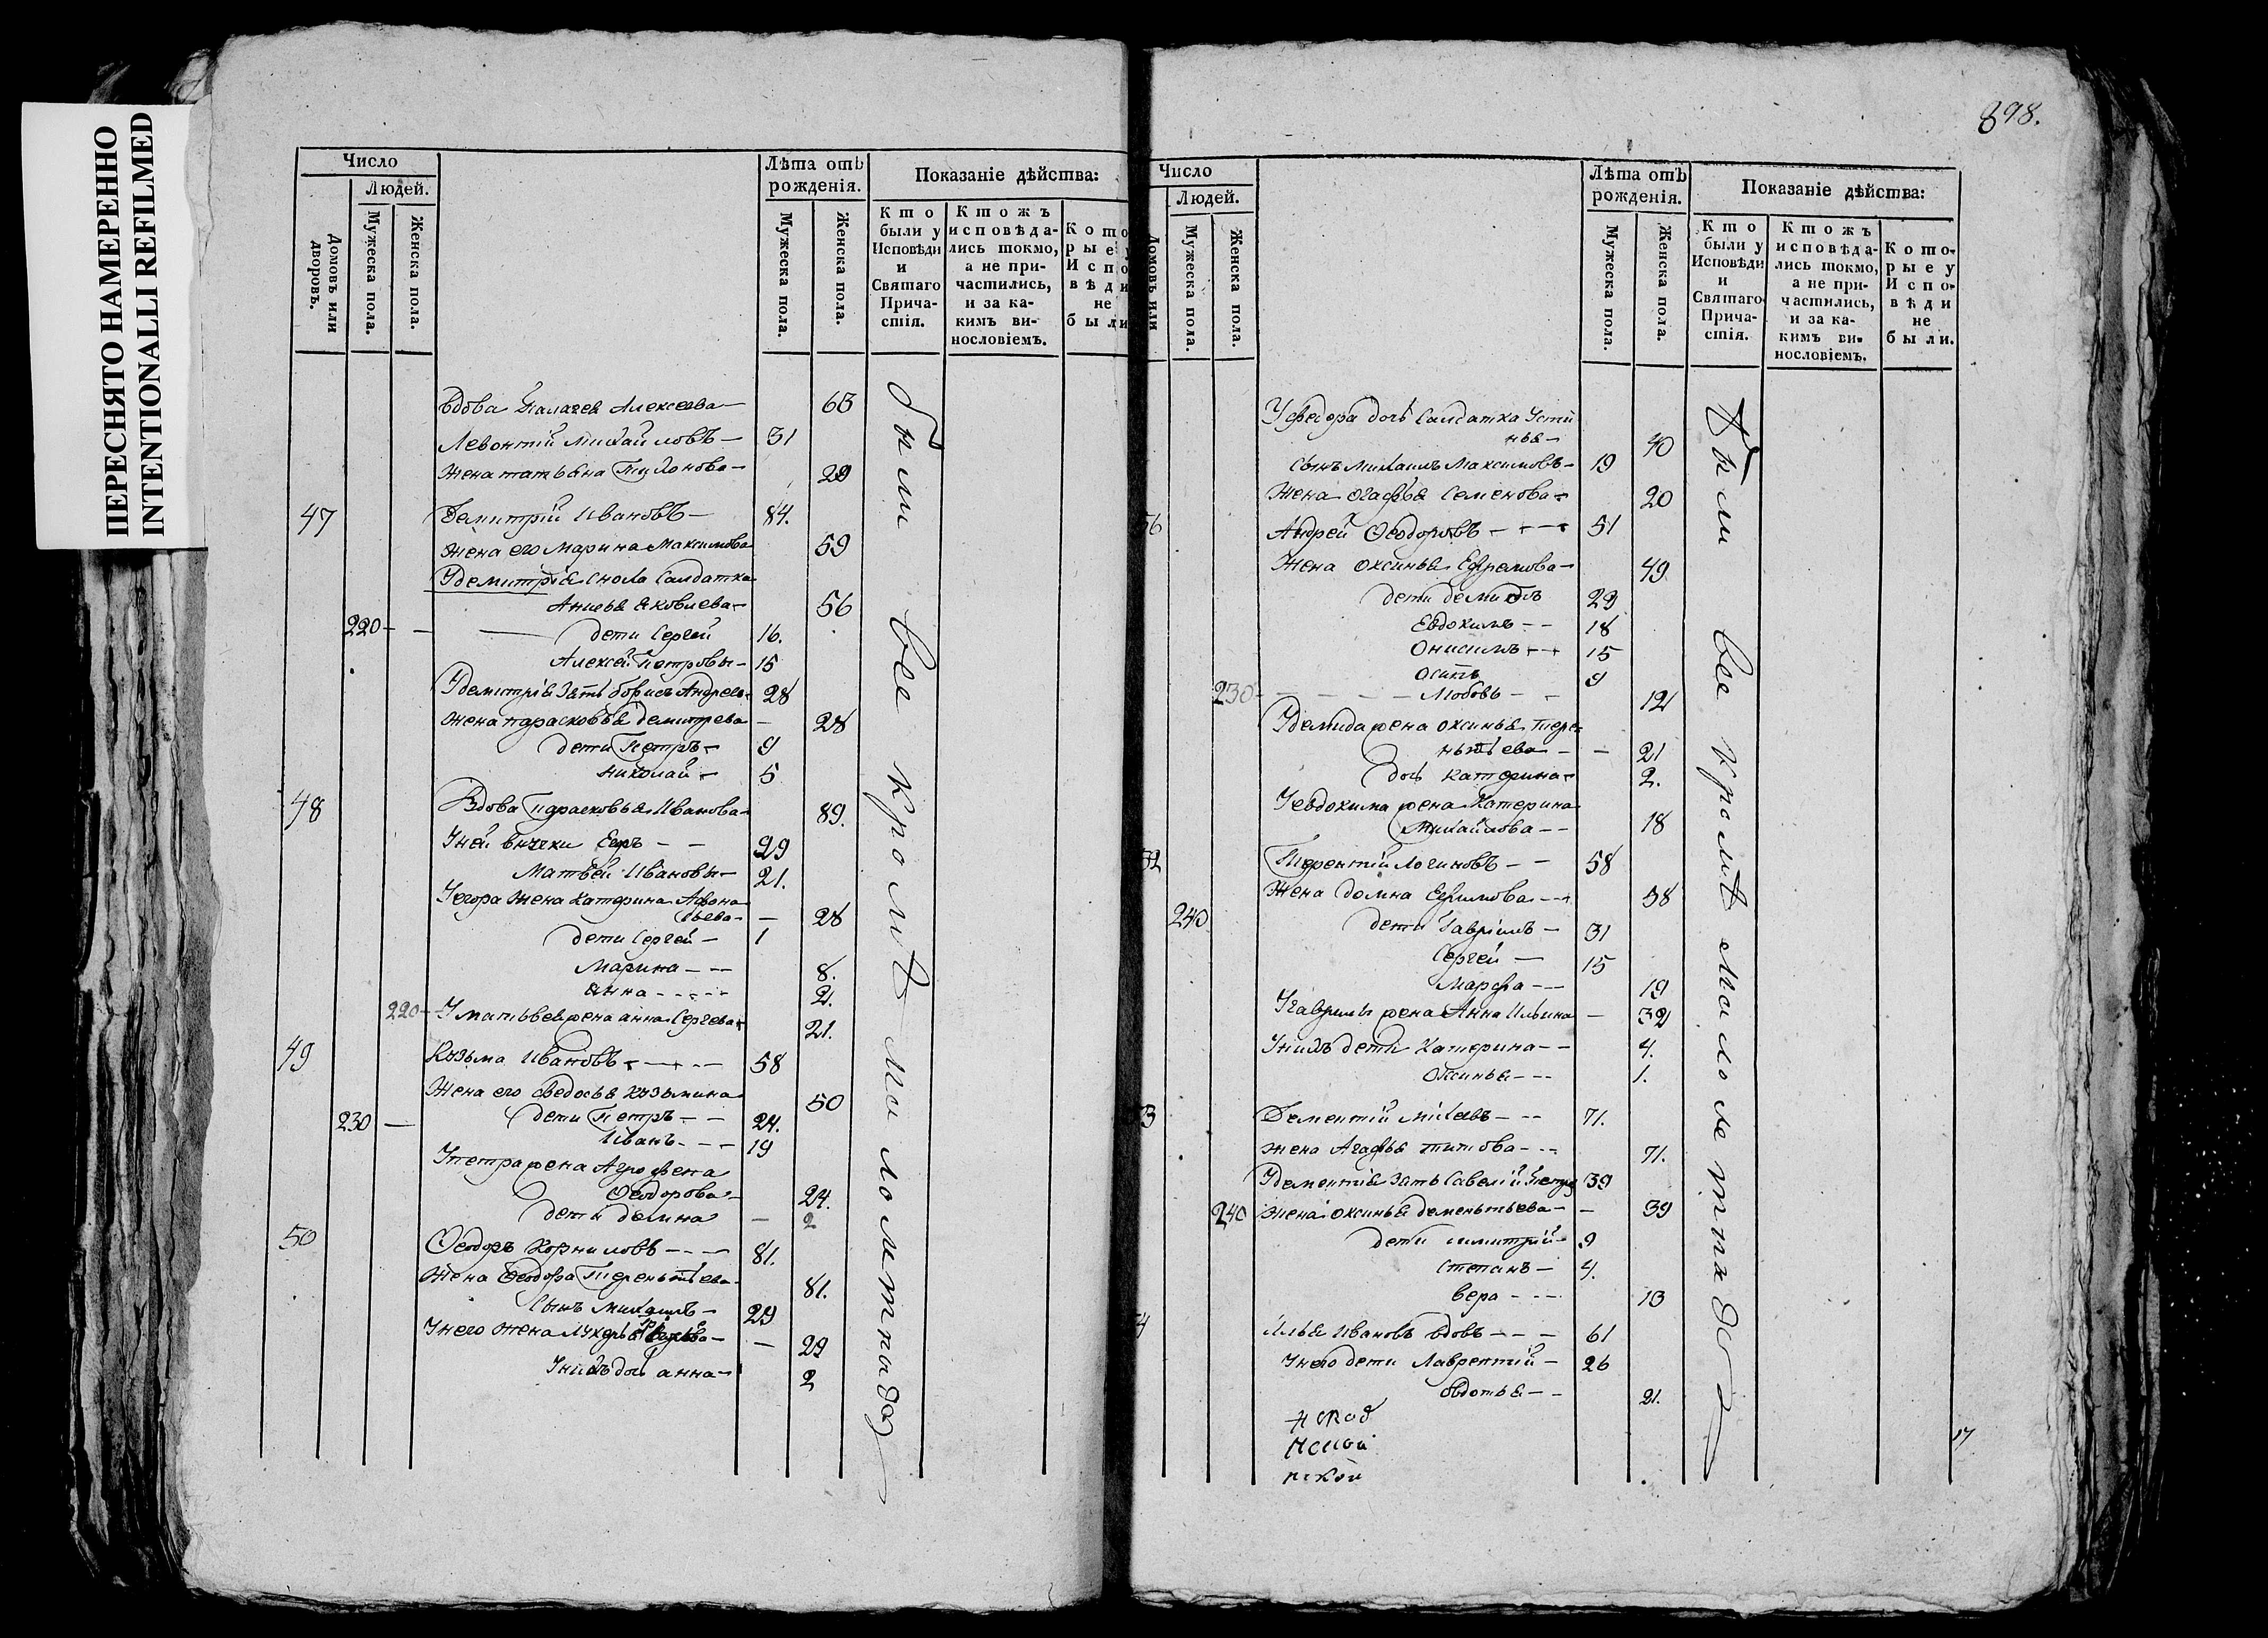 ПЕРЕСНЯТО НАМЕРЕННО
INTENTIONALLI REFILMED
898.
Число
Людей.
Домовъ или дворовъ.
Мужеска пола.
Женска пола.
Лѣта отъ рожденія.
Мужеска пола.
Женска пола.
Показаніе дѣйства:
Кто были у Исповѣди и Святаго Прича-стія.
Ктожъ исповѣда-лись токмо, а не при-частились, и за ка-кимъ ви-нословіемъ.
Кото рые у Испо вѣди не были
вдова Палагея Алексеева 63
Левонтій Михайловъ 31
Жена татьяна Тихонова 29
47 Демитрій Ивановъ 84.
жена его Марина Максимова 59
У демитрія сноха Салдатка
Анисья яковлева 56
220 дети Сергей 16.
Алексей Петровы 15
У демитрія зять борисъ Андреевъ 28
жена парасковья демитрева 28
дети Петръ 9
николай 5
48 Вдова Парасковья Иванова 89.
У ней внучки Егоръ 29
Матвей Ивановы 21.
У егора жена Катерина Афона
сьева 28
дети Сергей 1
Марина 8.
анна 2.
220 У матьвея жена анна Сергева 21.
49 Кузьма Ивановъ 58
Жена его федосья Кузьмина 50
230 дети Петръ 24.
Иванъ 19
У петра жена Аграфена
Феодорова 24.
дети домна 2
50 Феодоръ Корниловъ 81.
Жена Феодора Терентьева 81.
Сынъ Михаилъ 29
У него жена лукерья 29
У нихъ дочь анна 2
были все кроме малолетныхъ
Число
Людей.
Домовъ или
Мужеска пола.
Женска пола.
Лѣта отъ рожденія.
Мужеска пола.
Женска пола.
Показаніе дѣйства:
Кто были у Исповѣди и Святаго Прича-стія.
Ктожъ исповѣда-лись токмо, а не при-частились, и за ка-кимъ ви-нословіемъ.
Кото-рые у Испо-вѣди не были.
У феодора дочь Салдатка Усти
нья 40
сынъ Михаилъ Максимовъ 19
Жена Огафья Семенова 20
Андрей Феодоровъ 51
Жена оксинья Ефремова 49
дети демидъ 29
Евдокимъ 18
Онисимъ 15
осипъ 9
230 Любовь 12
У демида жена оксинья тере
ньтьева 21
дочь катерина 2.
У евдокима жена Катерина
Михайлова 18
52 Терентій Логиновъ 58
Жена домна Ефимова 58
240 дети Гавріилъ 31
Сергей 15
Марфа 19
У гаврилы жена Анна Ильина 32
У нихъ дети Катерина 4.
оксинья 1.
53 Дементій Михевъ 71.
жена Агафья титова 71.
У дементія зять Савелій Петръ 39
240 Жена оксинья деменьтьева 39
дети 9
Степанъ 4.
вера 13
Илья Ивановъ вдовъ 61
У него дети Лаврентій 26
овдотья 21.
были все кроме малолетныхъ
17